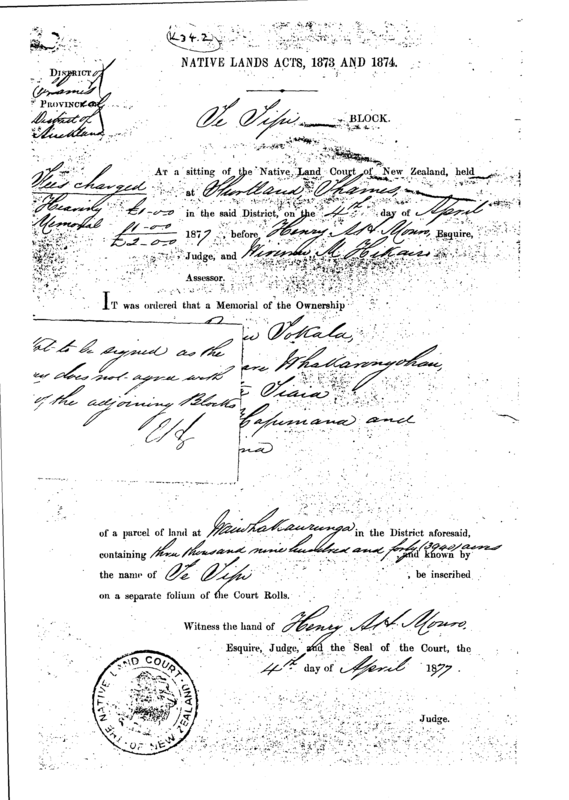 K34.2
NATIVE LANDS ACTS, 1873 AND 1874.
DISTRICT of
Thames
PROVINCIAL
District of
Auckland
Te Tipi BLOCK.
AT a sitting of the Native Land Court of New Zealand, held
at Shortland Thames
in the said District, on the 4th day of April
1877, before Henry A H Monro, Esquire,
Judge, and M Hikairo
Assessor.
Fees charged
Hearing £1-0-0
Memorial £1-0-0
£2-0-0
IT was ordered that a Memorial of the Ownership
to be signed as the
does not agree with
of the adjoining Blocks
and
of a parcel of land at Waiwhakaurunga in the District aforesaid,
containing three thousand nine hundred and forty (3940) acres and known by
the name of Te Tipi, be inscribed
on a separate folium of the Court Rolls.
Witness the hand of Henry A H Monro,
Esquire, Judge, and the Seal of the Court, the
4th day of April 1877
THE NATIVE LAND COURT OF NEW ZEALAND
Judge.